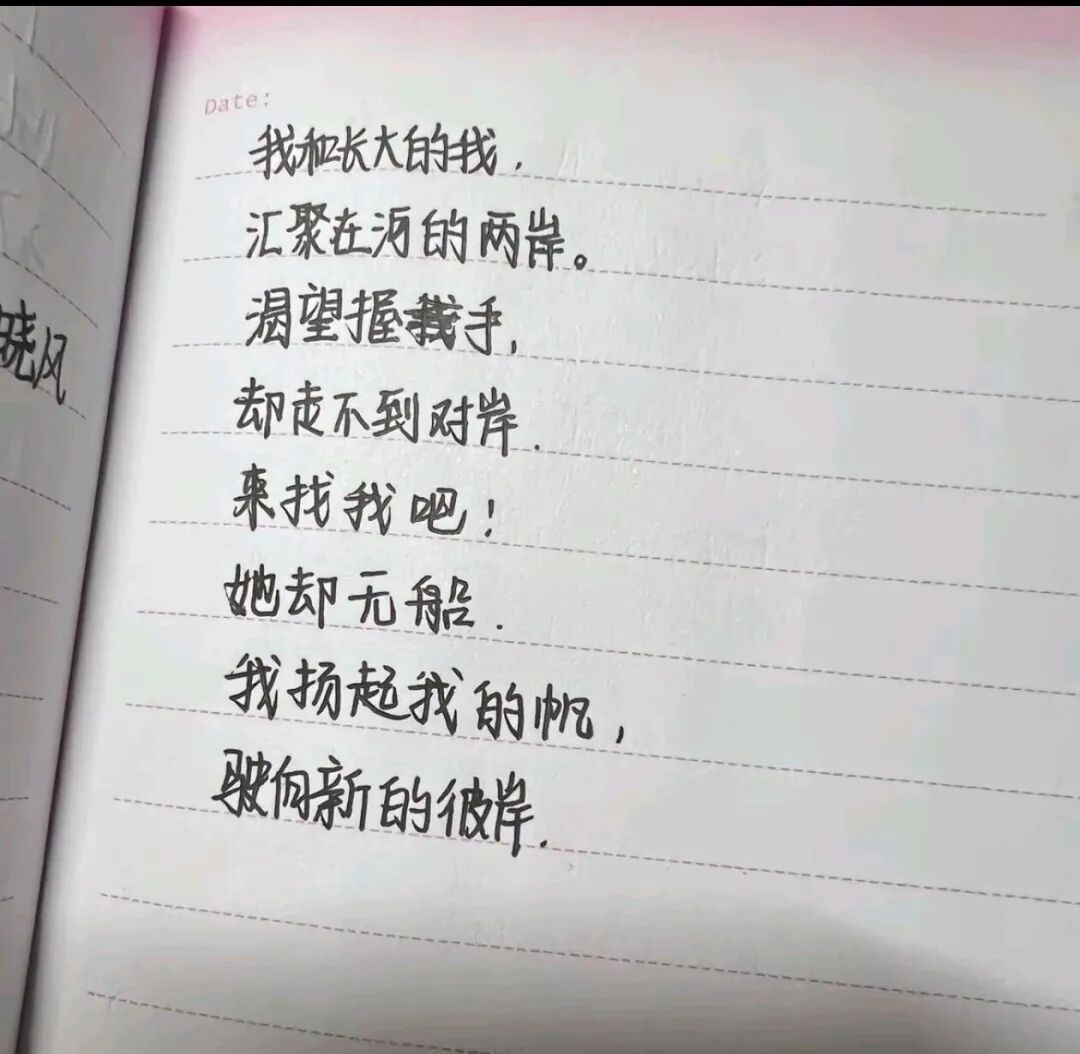 Date:
我和长大的我.
汇聚在河的两岸。
渴望握手,
却走不到对岸.
来找我吧!
她却无船.
我扬起我的帆,
驶向新的彼岸.
晓风